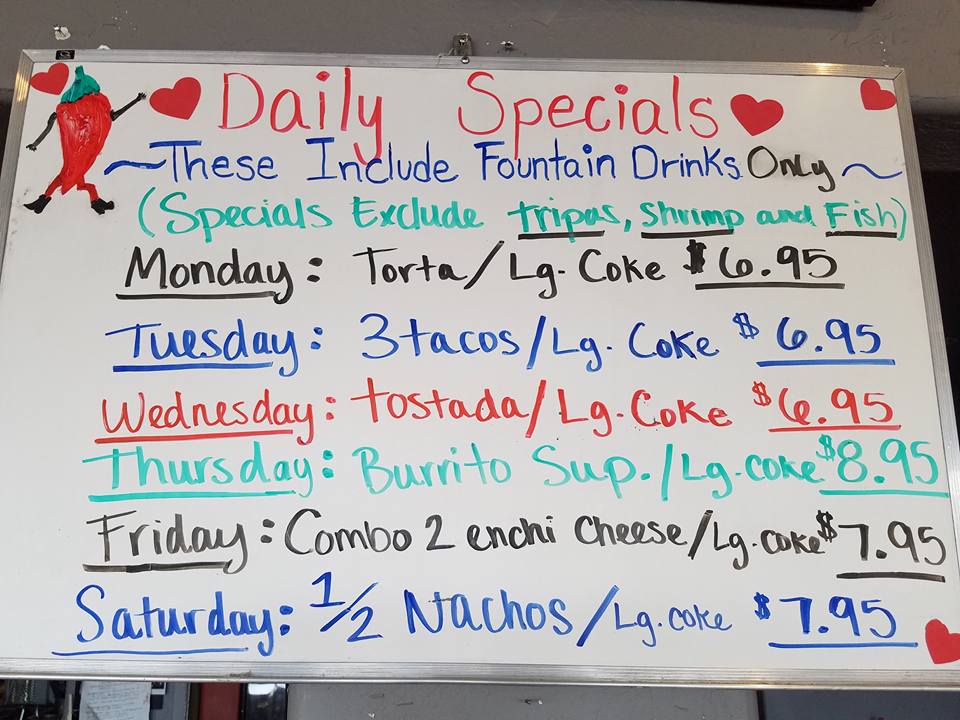 Daily Specials
~These Include Fountain Drinks Only~
(Specials Exclude tripas, Shrimp and Fish)
Monday: Torta/Lg. Coke $6.95
Tuesday: 3 tacos/Lg. Coke $6.95
Wednesday: tostada/Lg. Coke $6.95
Thursday: Burrito Sup./Lg. coke $8.95
Friday: Combo 2 enchi cheese/Lg. coke $7.95
Saturday: 1/2 Nachos/Lg. coke $7.95